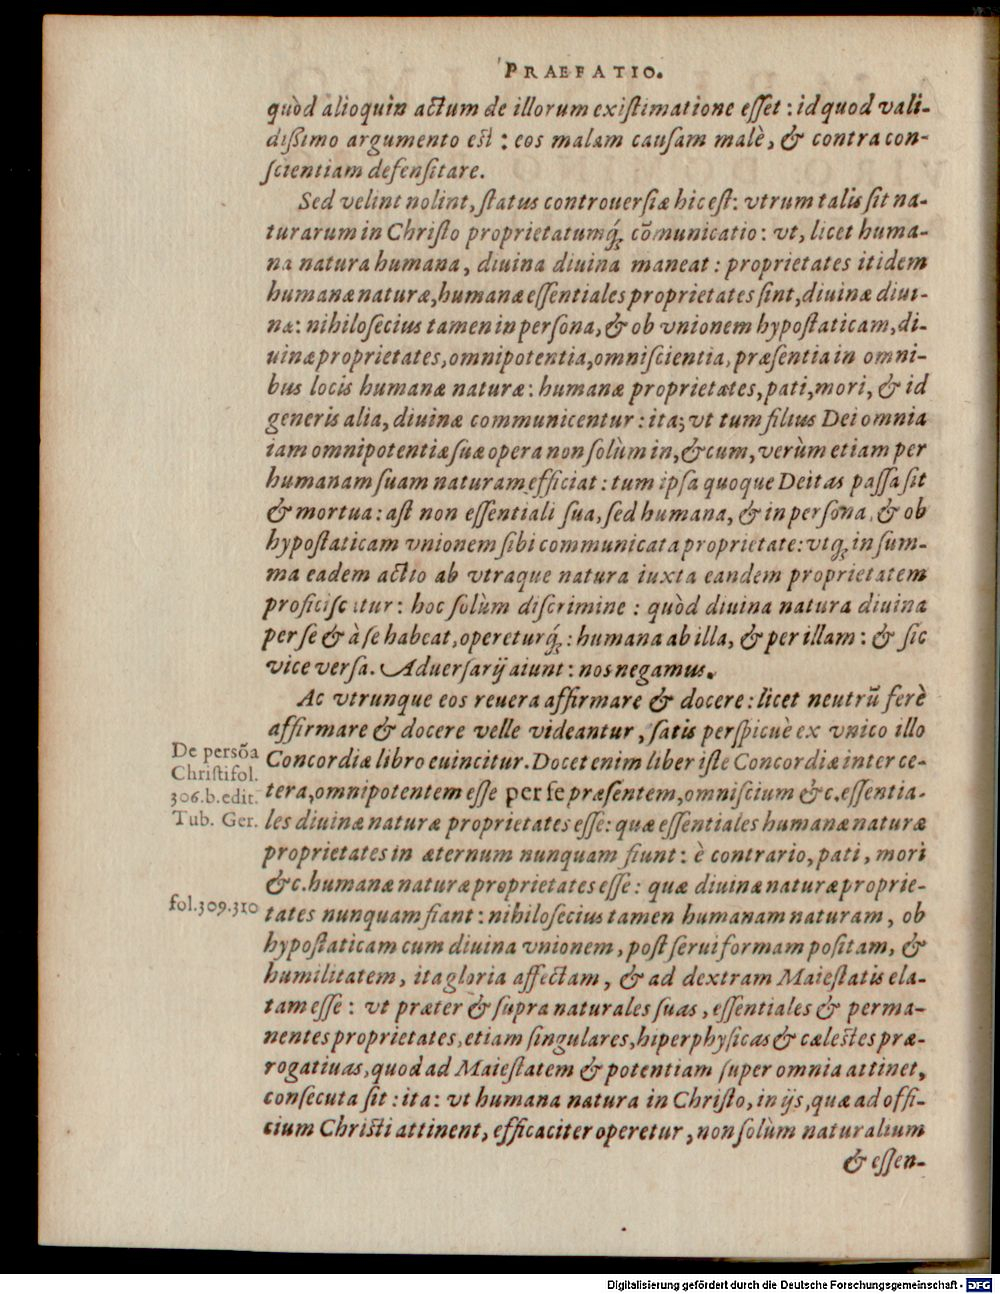 PRAEFATIO.
quòd alioquin actum de illorum existimatione esset: id quod vali-
dißimo argumento est: eos malam causam malè, & contra con-
scientiam defensitare.
Sed velint nolint, status controuersiæ hic est: vtrum talis sit na-
turarum in Christo proprietatumq́; cõmunicatio: vt, licet huma-
na natura humana, diuina diuina maneat: proprietates itidem
humanæ naturæ, humanæ essentiales proprietates sint, diuinæ diui-
næ: nihilosecius tamen in persona, & ob vnionem hypostaticam, di-
uinæ proprietates, omnipotentia, omniscientia, præsentia in omni-
bus locis humanæ naturæ: humanæ proprietates, pati, mori, & id
generis alia, diuinæ communicentur: ita; vt tum filius Dei omnia
iam omnipotentiæ suæ opera non solùm in, & cum, verùm etiam per
humanam suam naturam efficiat: tum ipsa quoque Deitas passa sit
& mortua: ast non essentiali sua, sed humana, & in persona, & ob
hypostaticam vnionem sibi communicata proprietate: vtq; in sum-
ma eadem actio ab vtraque natura iuxta eandem proprietatem
proficiscatur: hoc solùm discrimine: quòd diuina natura diuina
per se & à se habeat, opereturq́;: humana ab illa, & per illam: & sic
vice versa. Aduersarij aiunt: nos negamus.
Ac vtrunque eos reuera affirmare & docere: licet neutrũ ferè
affirmare & docere velle videantur, satis perspicuè ex vnico illo
De persõa
Christi fol.
306.b. edit.
Tub. Ger.
Concordiæ libro euincitur. Docet enim liber iste Concordiæ inter ce-
tera, omnipotentem esse per se præsentem, omniscium &c. essentia-
les diuinæ naturæ proprietates esse: quæ essentiales humanæ naturæ
proprietates in æternum nunquam fiunt: è contrario, pati, mori
&c. humanæ naturæ proprietates esse: quæ diuinæ naturæ proprie-
fol.309.310
tates nunquam fiant: nihilosecius tamen humanam naturam, ob
hypostaticam cum diuina vnionem, post serui formam positam, &
humilitatem, ita gloria affectam, & ad dextram Maiestatis ela-
tam esse: vt præter & supra naturales suas, essentiales & perma-
nentes proprietates, etiam singulares, hiperphysicas & cælestes præ-
rogatiuas, quod ad Maiestatem & potentiam super omnia attinet,
consecuta sit: ita: vt humana natura in Christo, in ijs, quæ ad offi-
cium Christi attinent, efficaciter operetur, non solùm naturalium
& essen-
Digitalisierung gefördert durch die Deutsche Forschungsgemeinschaft - DFG